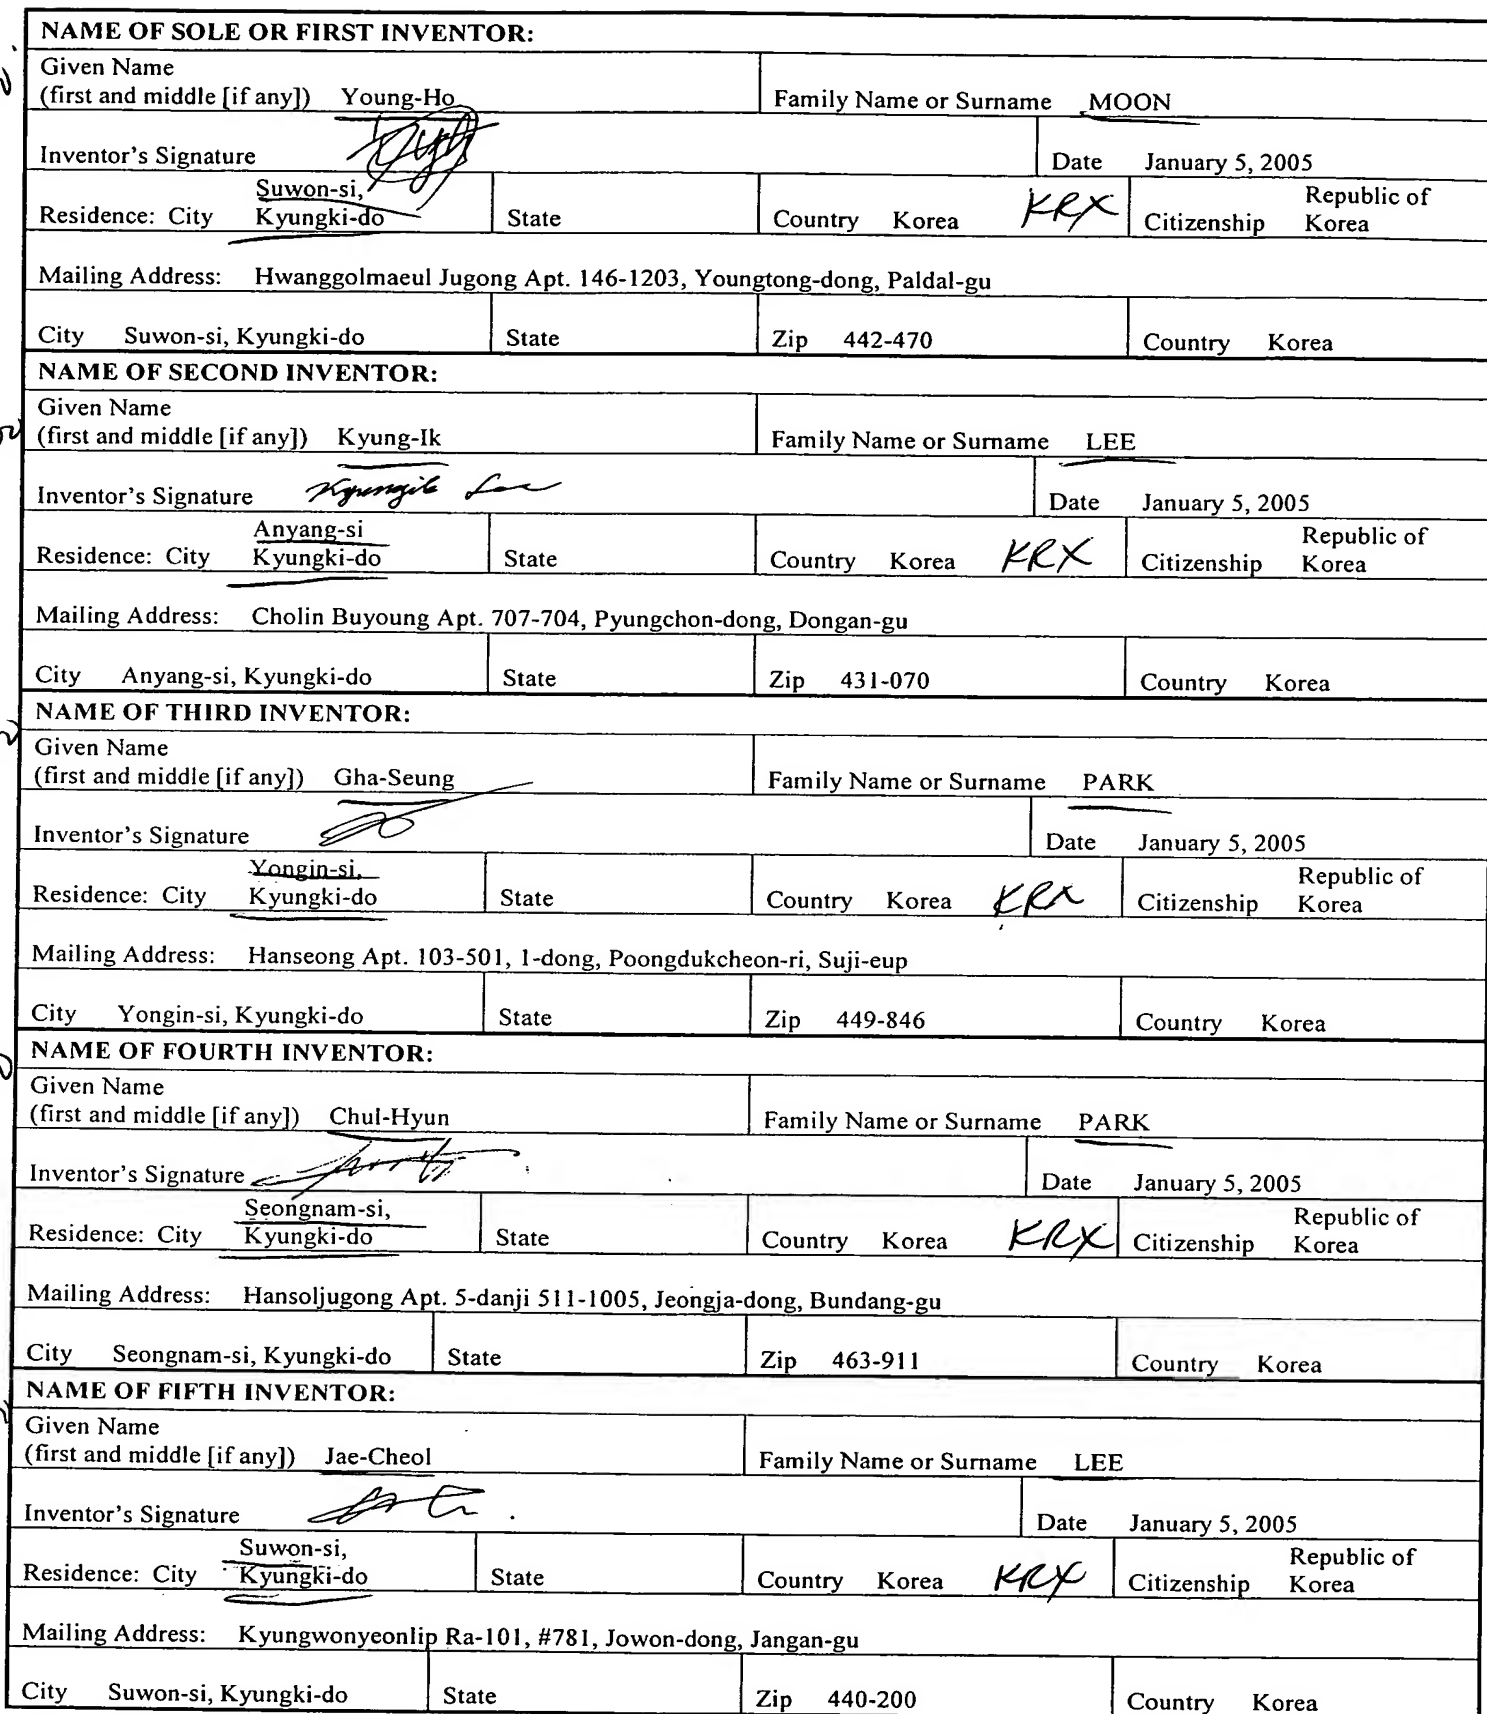 NAME OF SOLE OR FIRST INVENTOR:
Given Name
(first and middle [if any]) Young-Ho Family Name or Surname MOON
Inventor's Signature Date January 5, 2005
Suwon-si, Republic of
Residence: City Kyungki-do State Country Korea KRX Citizenship Korea
Mailing Address: Hwanggolmaeul Jugong Apt. 146-1203, Youngtong-dong, Paldal-gu
City Suwon-si, Kyungki-do State Zip 442-470 Country Korea
NAME OF SECOND INVENTOR:
Given Name
(first and middle [if any]) Kyung-Ik Family Name or Surname LEE
Inventor's Signature Kyungik Lee Date January 5, 2005
Anyang-si Republic of
Residence: City Kyungki-do State Country Korea KRX Citizenship Korea
Mailing Address: Cholin Buyoung Apt. 707-704, Pyungchon-dong, Dongan-gu
City Anyang-si, Kyungki-do State Zip 431-070 Country Korea
NAME OF THIRD INVENTOR:
Given Name
(first and middle [if any]) Gha-Seung Family Name or Surname PARK
Inventor's Signature Date January 5, 2005
Yongin-si, Republic of
Residence: City Kyungki-do State Country Korea KRX Citizenship Korea
Mailing Address: Hanseong Apt. 103-501, 1-dong, Poongdukcheon-ri, Suji-eup
City Yongin-si, Kyungki-do State Zip 449-846 Country Korea
NAME OF FOURTH INVENTOR:
Given Name
(first and middle [if any]) Chul-Hyun Family Name or Surname PARK
Inventor's Signature Date January 5, 2005
Seongnam-si, Republic of
Residence: City Kyungki-do State Country Korea KRX Citizenship Korea
Mailing Address: Hansoljugong Apt. 5-danji 511-1005, Jeongja-dong, Bundang-gu
City Seongnam-si, Kyungki-do State Zip 463-911 Country Korea
NAME OF FIFTH INVENTOR:
Given Name
(first and middle [if any]) Jae-Cheol Family Name or Surname LEE
Inventor's Signature Date January 5, 2005
Suwon-si, Republic of
Residence: City Kyungki-do State Country Korea KRX Citizenship Korea
Mailing Address: Kyungwonyeonlip Ra-101, #781, Jowon-dong, Jangan-gu
City Suwon-si, Kyungki-do State Zip 440-200 Country Korea